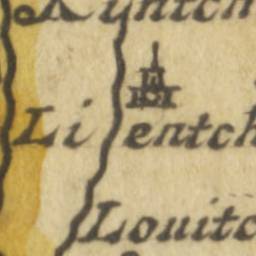 Kyntch
Li entch
Louitc